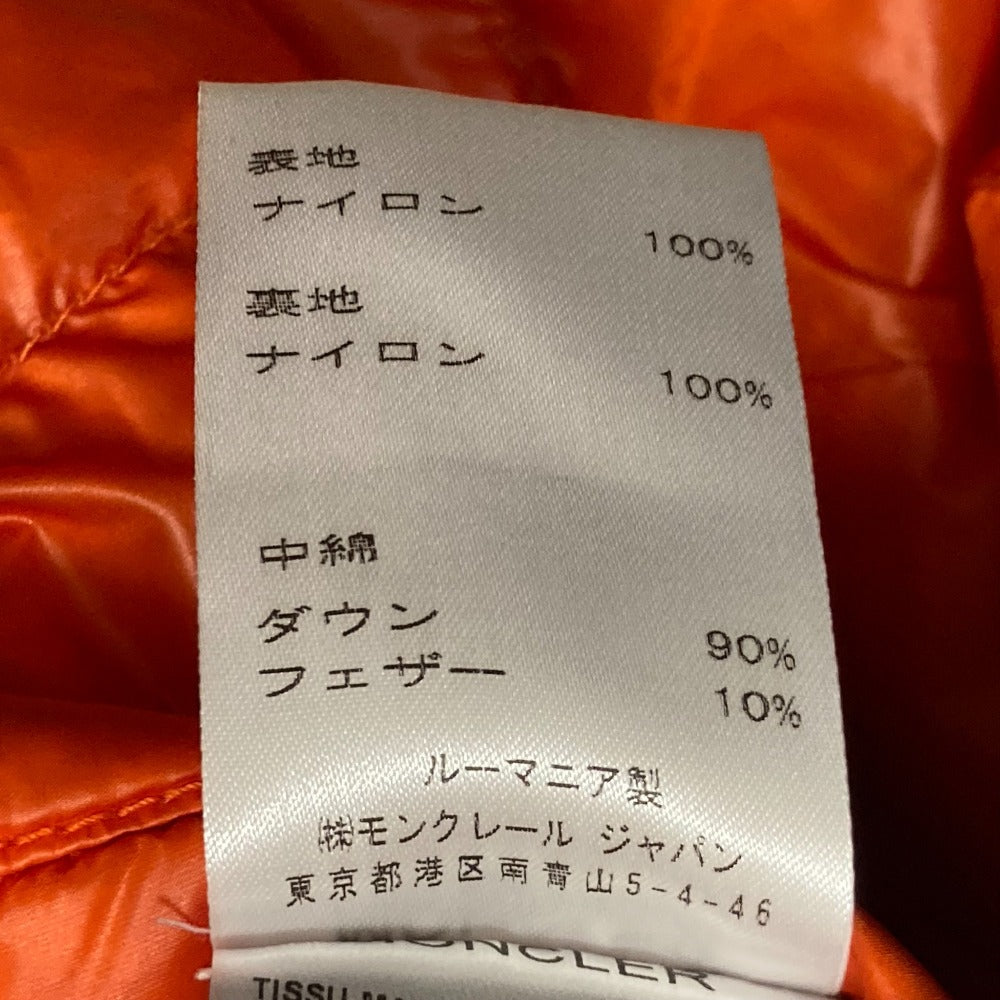 表地
ナイロン
100%
裏地
ナイロン
100%
中綿
ダウン
90%
フェザー
10%
ルーマニア製
㈱モンクレール ジャパン
東京都港区南青山5-4-46
MONCLER
TISSU